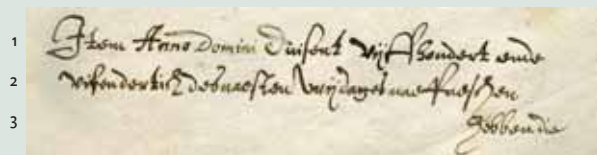 1 Item Anno Domini Duisent vyffhondert ende
2 vifendertich des naesten vrijdages nae
3 hebben die